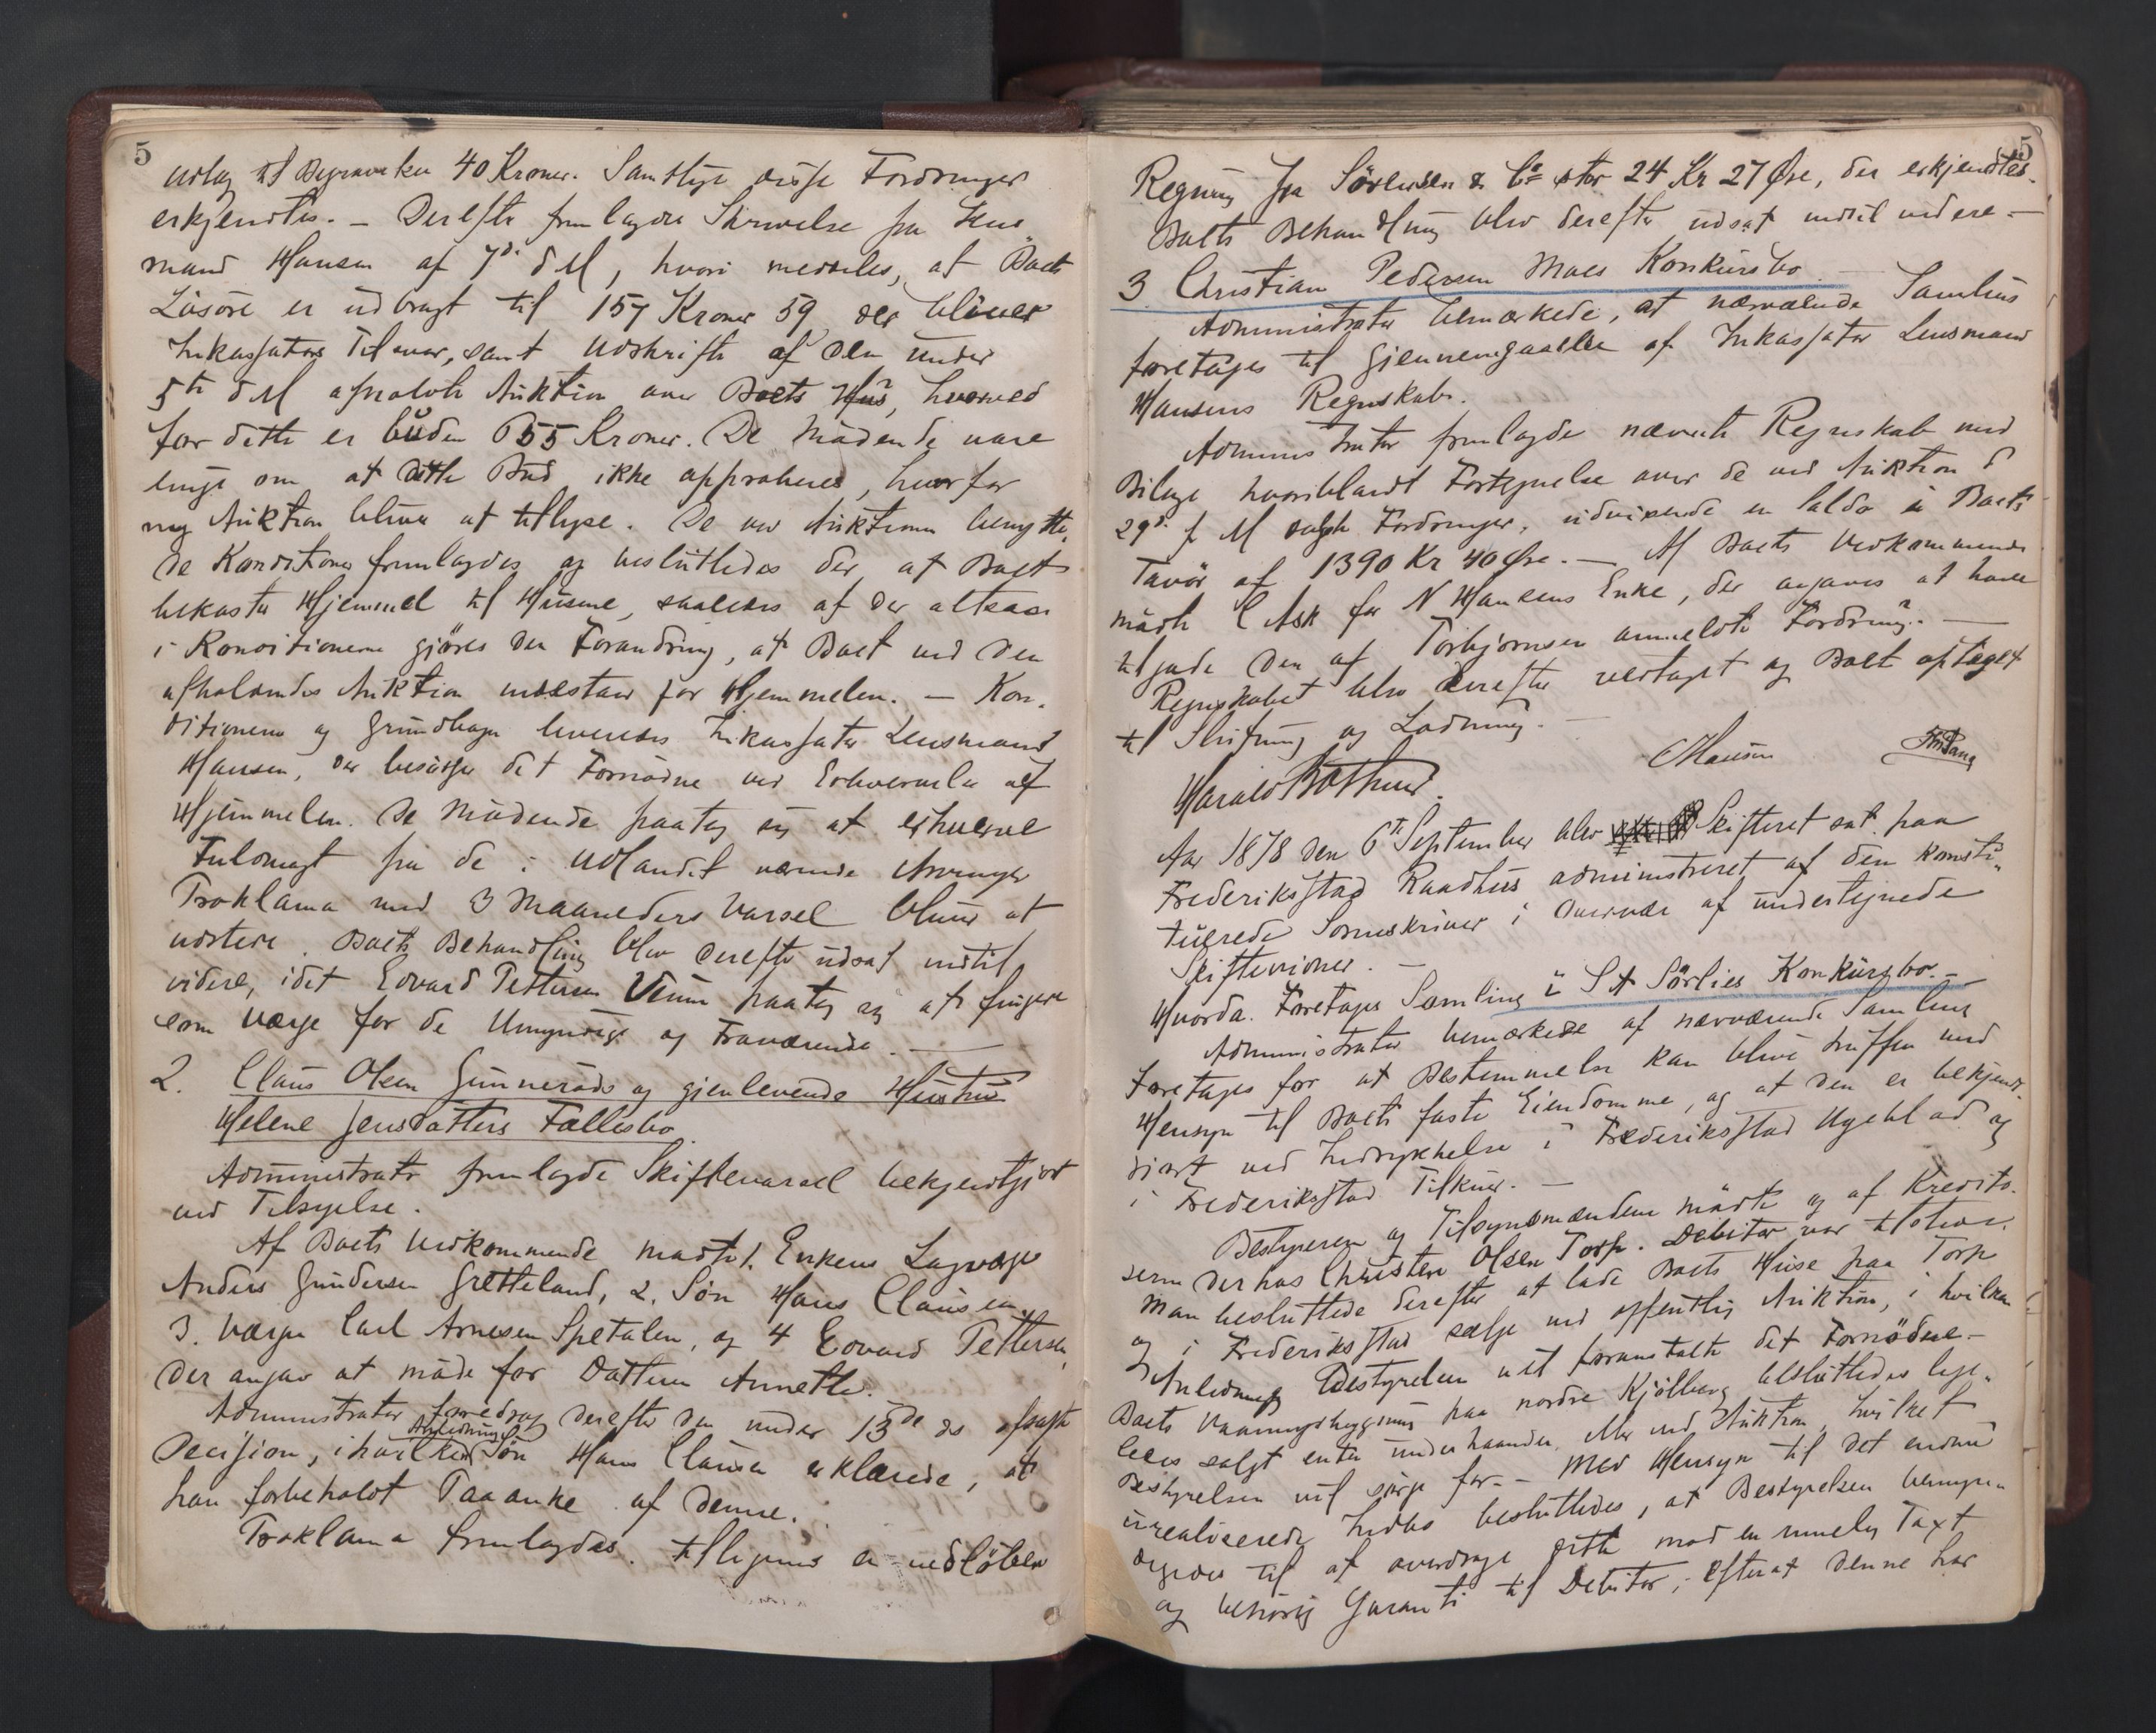 5
Udlæg til Begravelsen 40 Kroner. Samtlige disse Fordringer
erkjendtes. – Derefter fremlagdes Skrivelse fra Lens-
mand Hansen af 7de d M, hvori meddeles, at Boets
Løsøre er udbragt til 157 Kroner 59, der bliver
Inkassators Tilsvar, samt Udskrift af den under
5te d M afholdte Auktion over Boets Hus, hvorved
for dette er buden 655 Kroner. De Mødende vare
enige om at dette Bud ikke approberes, hvorfor
ny Auktion bliver at tillyse. De ved Auktionen benytte-
de Konditioner fremlagdes og besluttedes der, at Boet
bekoster Hjemmel til Husene, saaledes at der altsaa
i Konditionerne gjøres den Forandring, at Boet ved den
afholdendes Auktion indestaar for Hjemmelen. – Kon-
ditionerne og Grundlagen leveredes Inkassator Lensmand
Hansen, der besørger det Fornødne ved Erhvervelse af
Hjemmelen. De Mødende paatog sig at erhverve
Fuldmagt fra de i Udlandet værende Arvinger
Proklama med 3 Maaneders Varsel bliver at
udstede. Boets Behandling blev derefter udsat indtil
videre, idet Edvard Pettersen Veum paatog sig at fungere
som Værge for de Umyndige og Fraværende. –
2. Claus Olsen Gunnerøds og gjenlevende Hustru
Helene Jensdatters Fællesbo.
Administrator fremlagde Skiftevarsel bekjendtgjort
ved Tilsigelse.
Af Boets Vedkommende mødte 1. Enkens Lagværge
Anders Gundersen Gretteland, 2. Søn Hans Clausen,
3. Værge Carl Arnesen Spetalen, og 4 Edvard Pettersen,
der angav at møde for Datteren Annette.
Administrator foredrog derefter den under 13de ds afsagte
Anledning
Decision, i hvilken Søn Hans Clausen erklærede, at
han forbeholdt Paaanke af denne.
Proklama fremlagdes. tilligemed en indløben
5
Regning fra Sørensen & Co stor 24 Kr 27 Øre, der erkjendtes.
Boets Behandling blev derefter udsat indtil videre. –
3 Christian Pedersen Moes Konkursbo. –
Administrator bemærkede, at nærværende Samling
foretages til Gjennemgaaelse af Inkassator Lensmand
Hansens Regnskab.
Administrator fremlagde nævnte Regnskab med
Bilage hvoriblandt Fortegnelse over de ved Auktion d
29de f M solgte Fordringer, udvisende en Saldo i Boets
Favør af 1390 Kr 40 Øre. – Af Boets Vedkommende
mødte C Ask for N Hansens Enke, der angaves at have
tilhørt den af Torbjørnsen anmeldte Fordring. –
Regnskabet blev derefter vedtaget og Boet optaget
til Slutning og Lodning. –
CHansen
Harald Bothner.
Aar 1878 den 6te September blev Skifteret sat paa
Frederiksstad Raadhus administreret af den konsti-
tuerede Sorenskriver i Overvær af undertegnede
Skiftevidner. –
Hvorda. Foretages Samling i S A Sørlies Konkursbo. –
Administrator bemærkede at nærværende Samling
foretages for at Bestemmelse kan blive truffen med
Hensyn til Boets faste Eiendomme, og at den er bekjendt-
gjort ved Indrykkelse i Frederiksstad Ugeblad og
i Frederiksstad Tilskuer. –
Bestyreren og Tilsynsmændene mødte og af Kredito-
rerne derhos Christen Olsen Torp. Debitor var tilstede.
Man besluttede derefter at lade Boets Huse paa Torp
og i Frederiksstad sælge ved offentlig Auktion, i hvilken
Anledning Bestyrelsen vil foranstalte det Fornødne. –
Boets Vaaningsbygning paa nordre Kjølberg besluttedes lige-
ledes solgt enten underhaanden eller ved Auktion, hvilket
Bestyrelsen vil sørge for. – Med Hensyn til det endnu
urealiserede Indbo besluttedes, at Bestyrelsen bemyn-
digedes til at overdrage dette mod en rimelig Taxt
og behørig Garanti til Debitor, efterat denne har